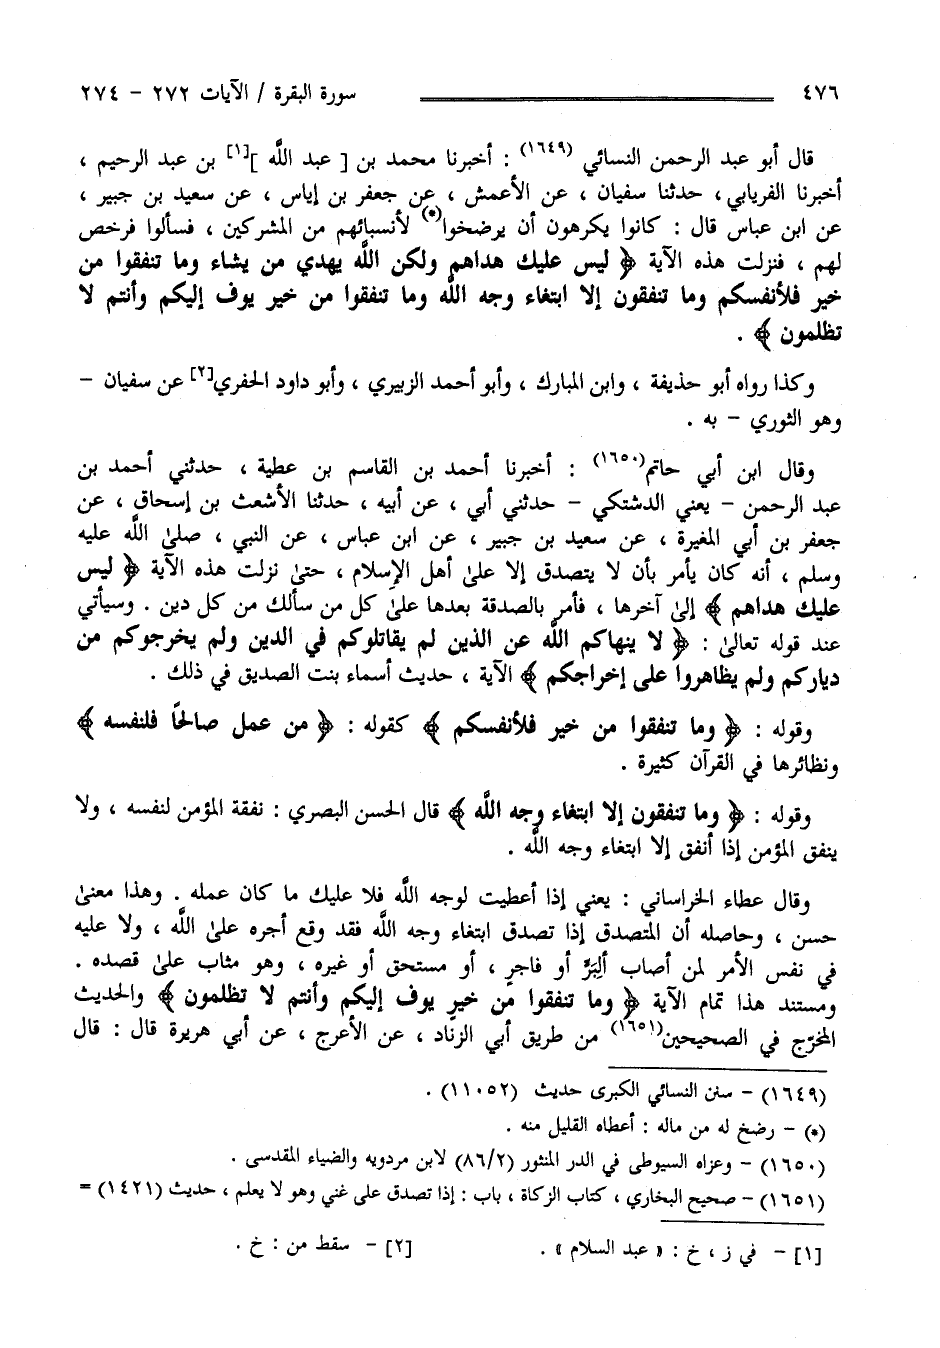 ٤٧٦ سورة البقرة / الآيات ٢٧٢ - ٢٧٤
قال أبو عبد الرحمن النسائي (١٦٤٩) : أخبرنا محمد بن [ عبد اللَّه ][١] بن عبد الرحيم ،
أخبرنا الفريابي ، حدثنا سفيان ، عن الأعمش ، عن جعفر بن إياس ، عن سعيد بن جبير ،
عن ابن عباس قال : كانوا يكرهون أن يرضخوا(*) لأنسبائهم من المشركين ، فسألوا فرخص
لهم ، فنزلت هذه الآية ﴿ ليس عليك هداهم ولكن اللَّه يهدي من يشاء وما تنفقوا من
خير فلأنفسكم وما تنفقون إلا ابتغاء وجه اللَّه وما تنفقوا من خير يوف إليكم وأنتم لا
تظلمون ﴾ .
وكذا رواه أبو حذيفة ، وابن المبارك ، وأبو أحمد الزبيري ، وأبو داود الحفري[٢] عن سفيان -
وهو الثوري - به .
وقال ابن أبي حاتم(١٦٥٠) : أخبرنا أحمد بن القاسم بن عطية ، حدثني أحمد بن
عبد الرحمن - يعني الدشتكي - حدثني أبي ، عن أبيه ، حدثنا الأشعث بن إسحاق ، عن
جعفر بن أبي المغيرة ، عن سعيد بن جبير ، عن ابن عباس ، عن النبي ، صلىٰ اللَّه عليه
وسلم ، أنه كان يأمر بأن لا يتصدق إلا علىٰ أهل الإسلام ، حتىٰ نزلت هذه الآية ﴿ ليس
عليك هداهم ﴾ إلىٰ آخرها ، فأمر بالصدقة بعدها علىٰ كل من سألك من كل دين . وسيأتي
عند قوله تعالىٰ : ﴿ لا ينهاكم اللَّه عن الذين لم يقاتلوكم في الدين ولم يخرجوكم من
دياركم ولم يظاهروا على إخراجكم ﴾ الآية ، حديث أسماء بنت الصديق في ذلك .
وقوله : ﴿ وما تنفقوا من خير فلأنفسكم ﴾ كقوله : ﴿ من عمل صالحًا فلنفسه ﴾
ونظائرها في القرآن كثيرة .
وقوله : ﴿ وما تنفقون إلا ابتغاء وجه اللَّه ﴾ قال الحسن البصري : نفقة المؤمن لنفسه ، ولا
ينفق المؤمن إذا أنفق إلا ابتغاء وجه اللَّه .
وقال عطاء الخراساني : يعني إذا أعطيت لوجه اللَّه فلا عليك ما كان عمله . وهذا معنىٰ
حسن ، وحاصله أن المتصدق إذا تصدق ابتغاء وجه اللَّه فقد وقع أجره علىٰ اللَّه ، ولا عليه
في نفس الأمر لمن أصاب ألِبَرٍّ أو فاجرٍ ، أو مستحق أو غيره ، وهو مثاب علىٰ قصده .
ومستند هذا تمام الآية ﴿ وما تنفقوا من خيرٍ يوف إليكم وأنتم لا تظلمون ﴾ والحديث
المخرّج في الصحيحين(١٦٥١) من طريق أبي الزناد ، عن الأعرج ، عن أبي هريرة قال : قال
(١٦٤٩) - سنن النسائي الكبرى حديث (١١٠٥٢) .
(*) - رضخ له من ماله : أعطاه القليل منه .
(١٦٥٠) - وعزاه السيوطي في الدر المنثور (٨٦/٢) لابن مردويه والضياء المقدسى .
(١٦٥١) - صحيح البخاري ، كتاب الزكاة ، باب : إذا تصدق على غني وهو لا يعلم ، حديث (١٤٢١) =
[١] - في ز ، خ : « عبد السلام » . [٢] - سقط من : خ .